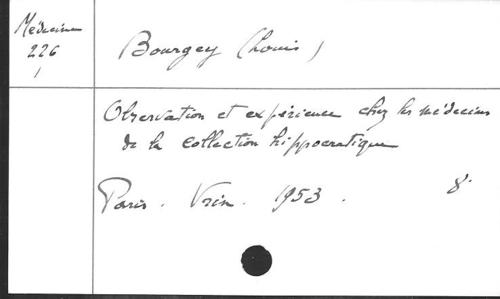 Médecine
226
/
Bourgey (Louis)
Observation et expérience chez les médecins
de la collection hippocratique
Paris. Vrin. 1953. 8°